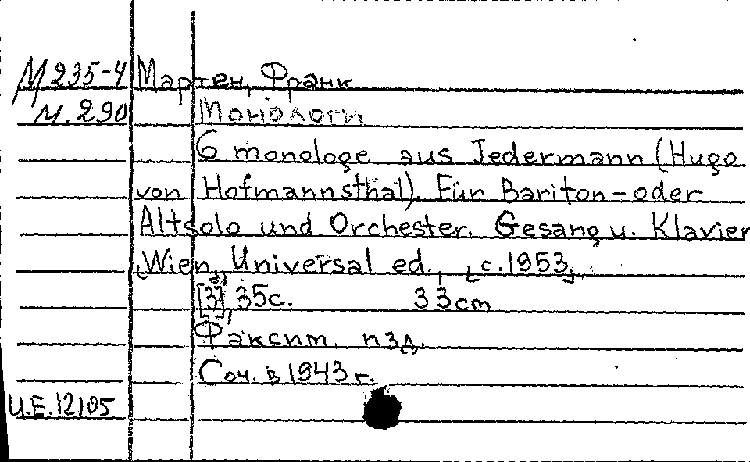 М 235-4 Мартен, Франк
м. 290 Монологи
6 monologe aus Jedermann (Hugo
von Hofmannsthal). Für Bariton-oder
Altsolo und Orchester. Gesang u. Klavier
Wien, Universal ed., c. 1953.
[3], 35с. 33cm
Факсим. изд.
Соч. в 1943 г.
U.E. 12105